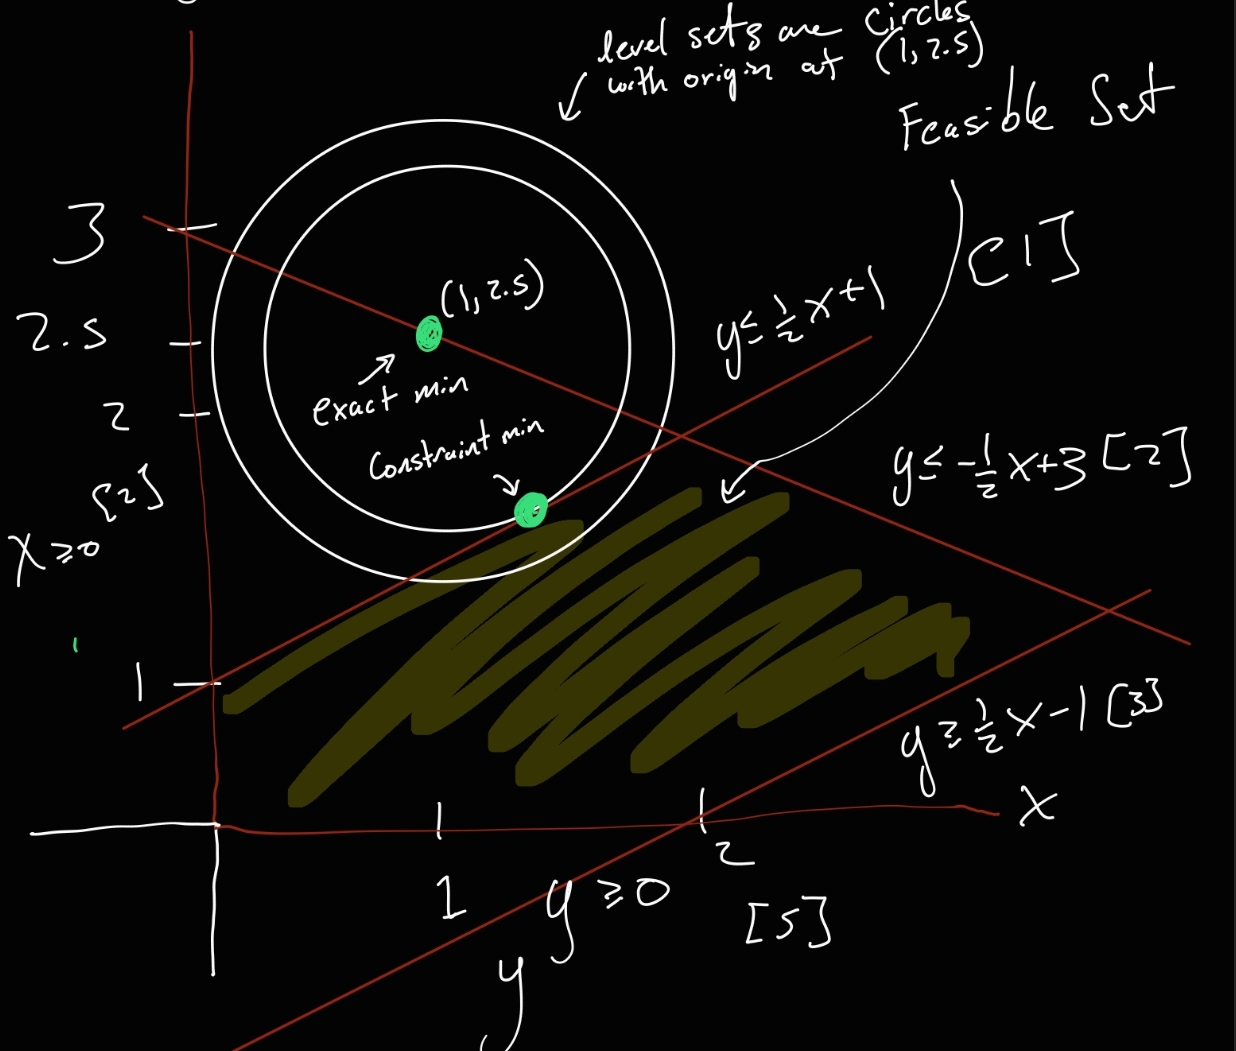 level sets are circles
with origin at (1, 2.5)
Feasible Set
[1]
3
(1, 2.5)
y ≤ 1/2 x + 1
2.5
exact min
2
Constraint min
y ≤ -1/2 x + 3 [2]
[2]
x ≥ 0
1
y ≥ 1/2 x - 1 [3]
x
2
1
y ≥ 0
[5]
y